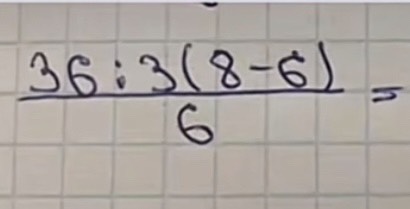 36:3(8-6)
6
=